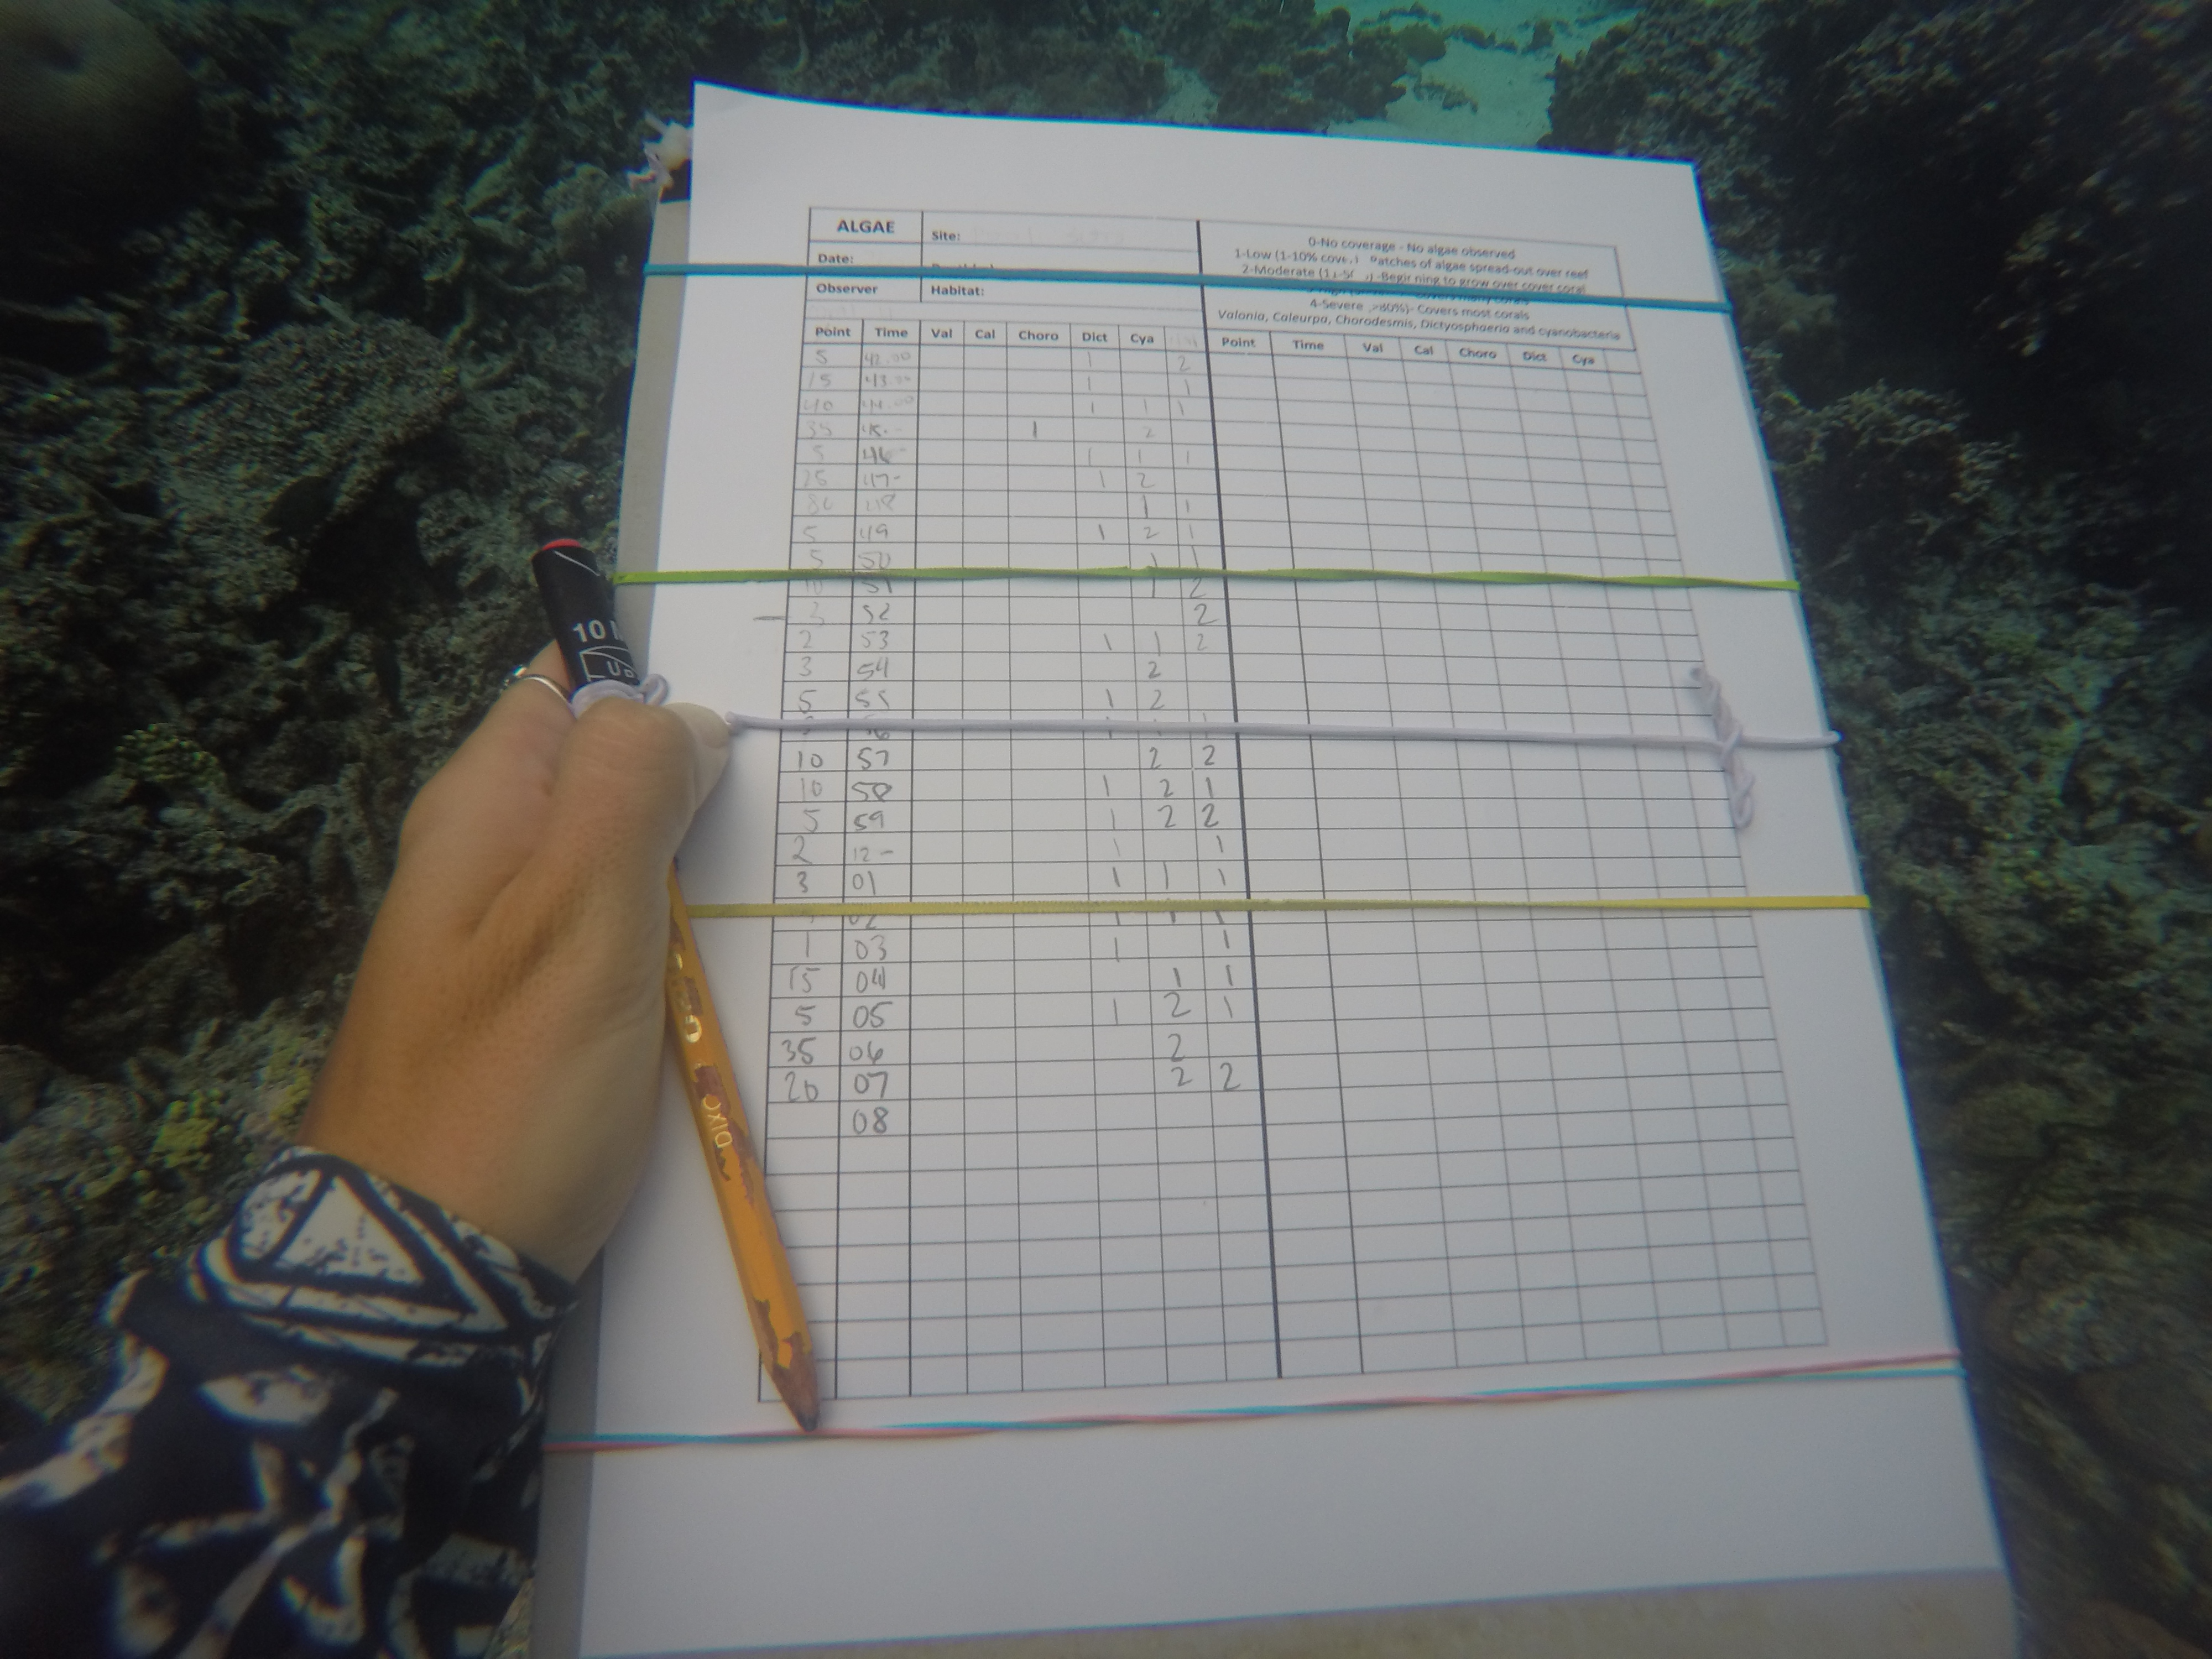 ALGAE Site:
Date:
Observer Habitat:
0-No coverage - No algae observed
1-Low (1-10% Patches of algae spread-out over reef
2-Moderate ning to grow over cover coral
4-Severe >80%)- Covers most corals
Valonia, Caleurpa, Chorodesmis, Dictyosphaeria and cyanobacteria
Point Time Val Cal Choro Dict Cya
Point Time Val Cal Choro Dict Cya
5 42.00 1 2
15 43.00 1 1
40 44.00 1 1 1
35 45.- 1 2
5 46- 1 1 1
25 47- 1 2
48 1 1
5 49 1 2 1
5 50 1 1
10 51 1 2
3 52 2
2 53 1 1 2
3 54 2
5 55 1 2
10 57 2 2
10 58 1 2 1
5 59 1 2 2
2 12- 1 1
3 01 1 1 1
02 1 1 1
1 03 1 1
15 04 1 1
5 05 1 2 1
35 06 2
20 07 2 2
08
10
DIXO